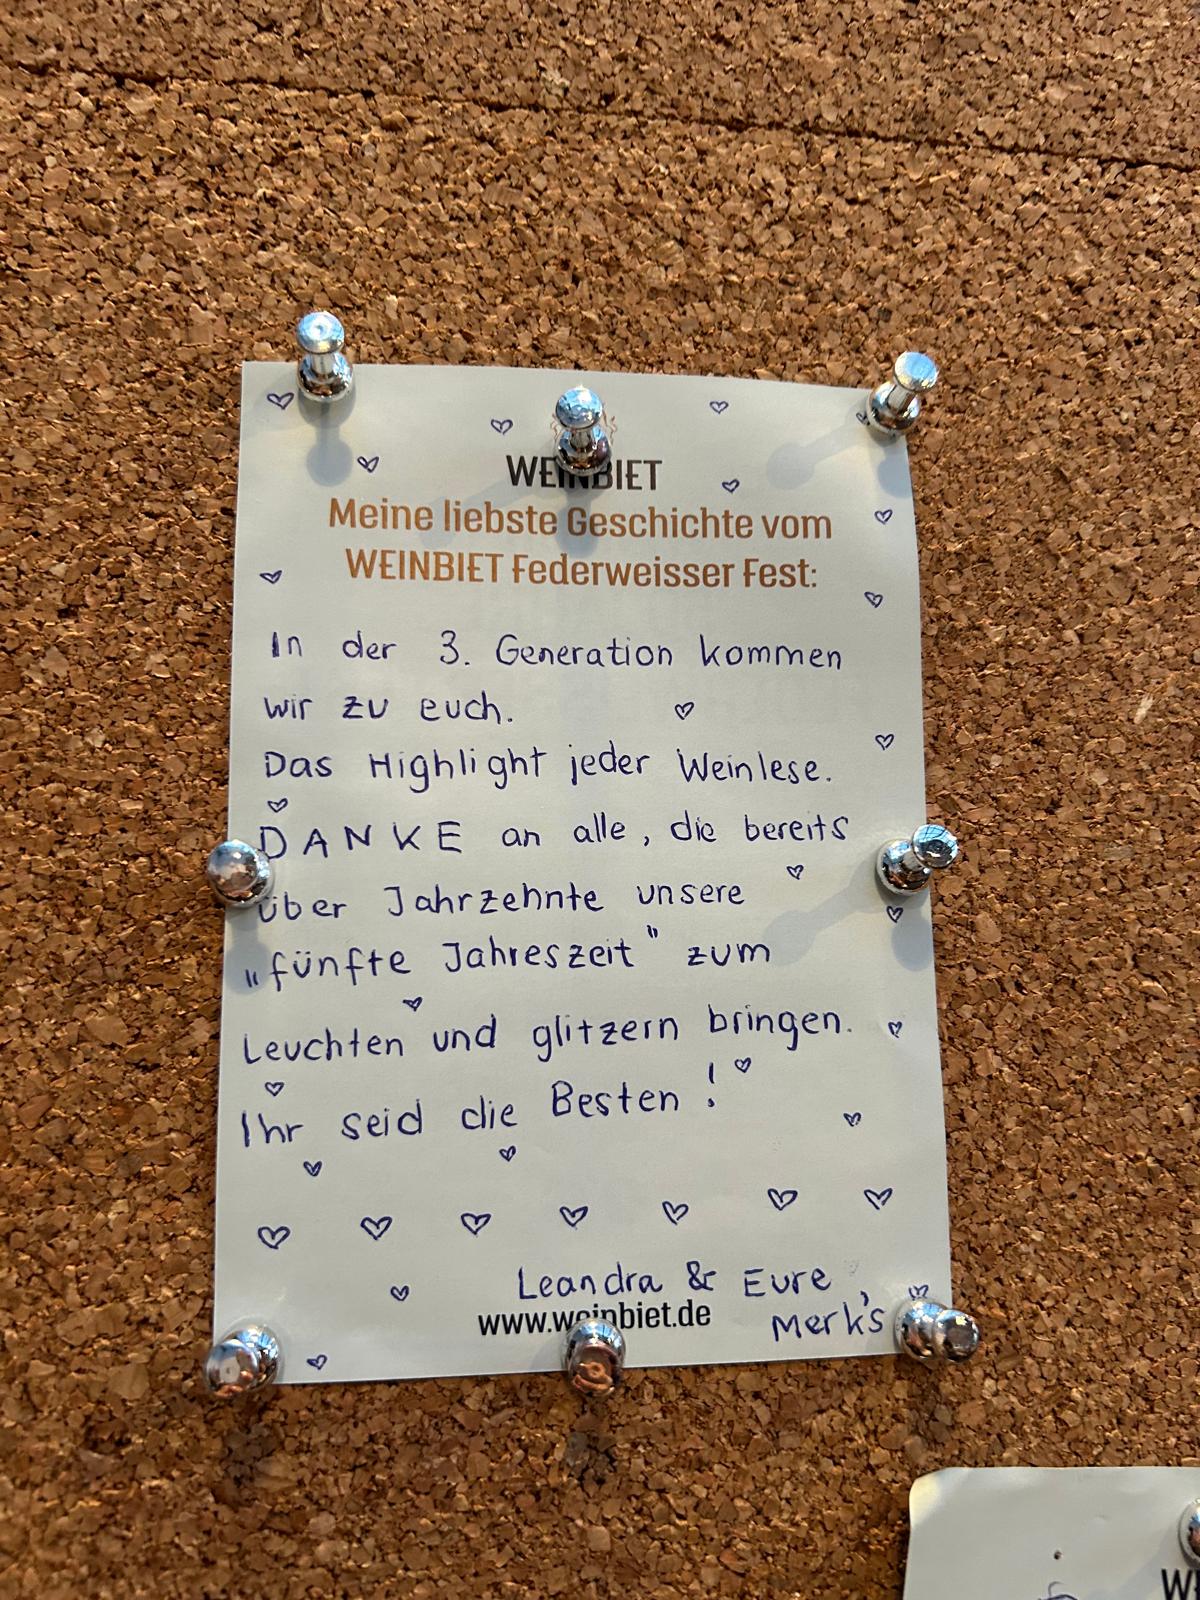 WEINBIET
Meine liebste Geschichte vom
WEINBIET Federweisser Fest:
In der 3. Generation kommen
wir zu euch.
Das Highlight jeder Weinlese.
DANKE an alle, die bereits
über Jahrzehnte unsere
„fünfte Jahreszeit" zum
Leuchten und glitzern bringen.
Ihr seid die Besten!
Leandra & Eure
Merk's
www.weinbiet.de